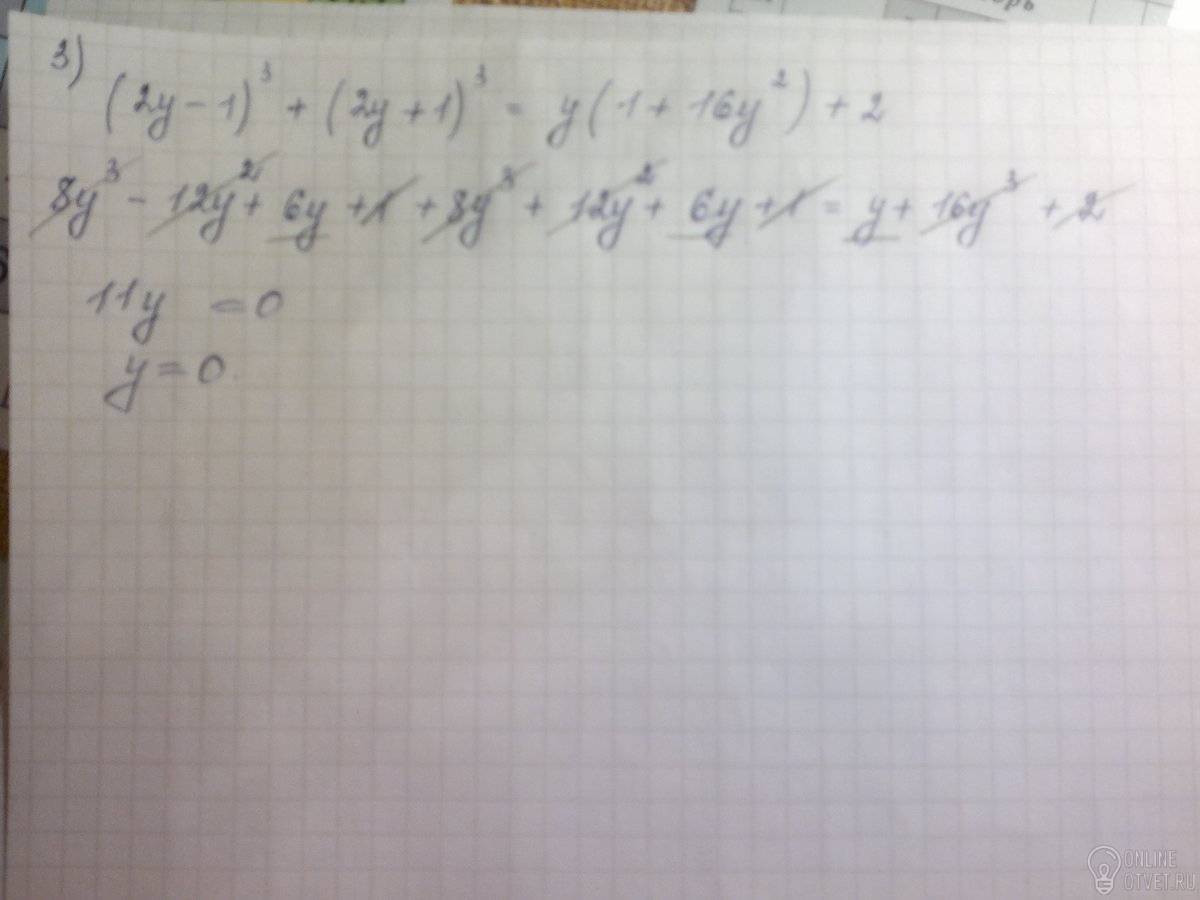 орь
3)
(2y - 1)³ + (2y + 1)³ = y(1 + 16y²) + 2
8y³ - 12y² + 6y + 1 + 8y³ + 12y² + 6y + 1 = y + 16y³ + 2
11y = 0
y = 0.
ONLINE
OTVET.RU